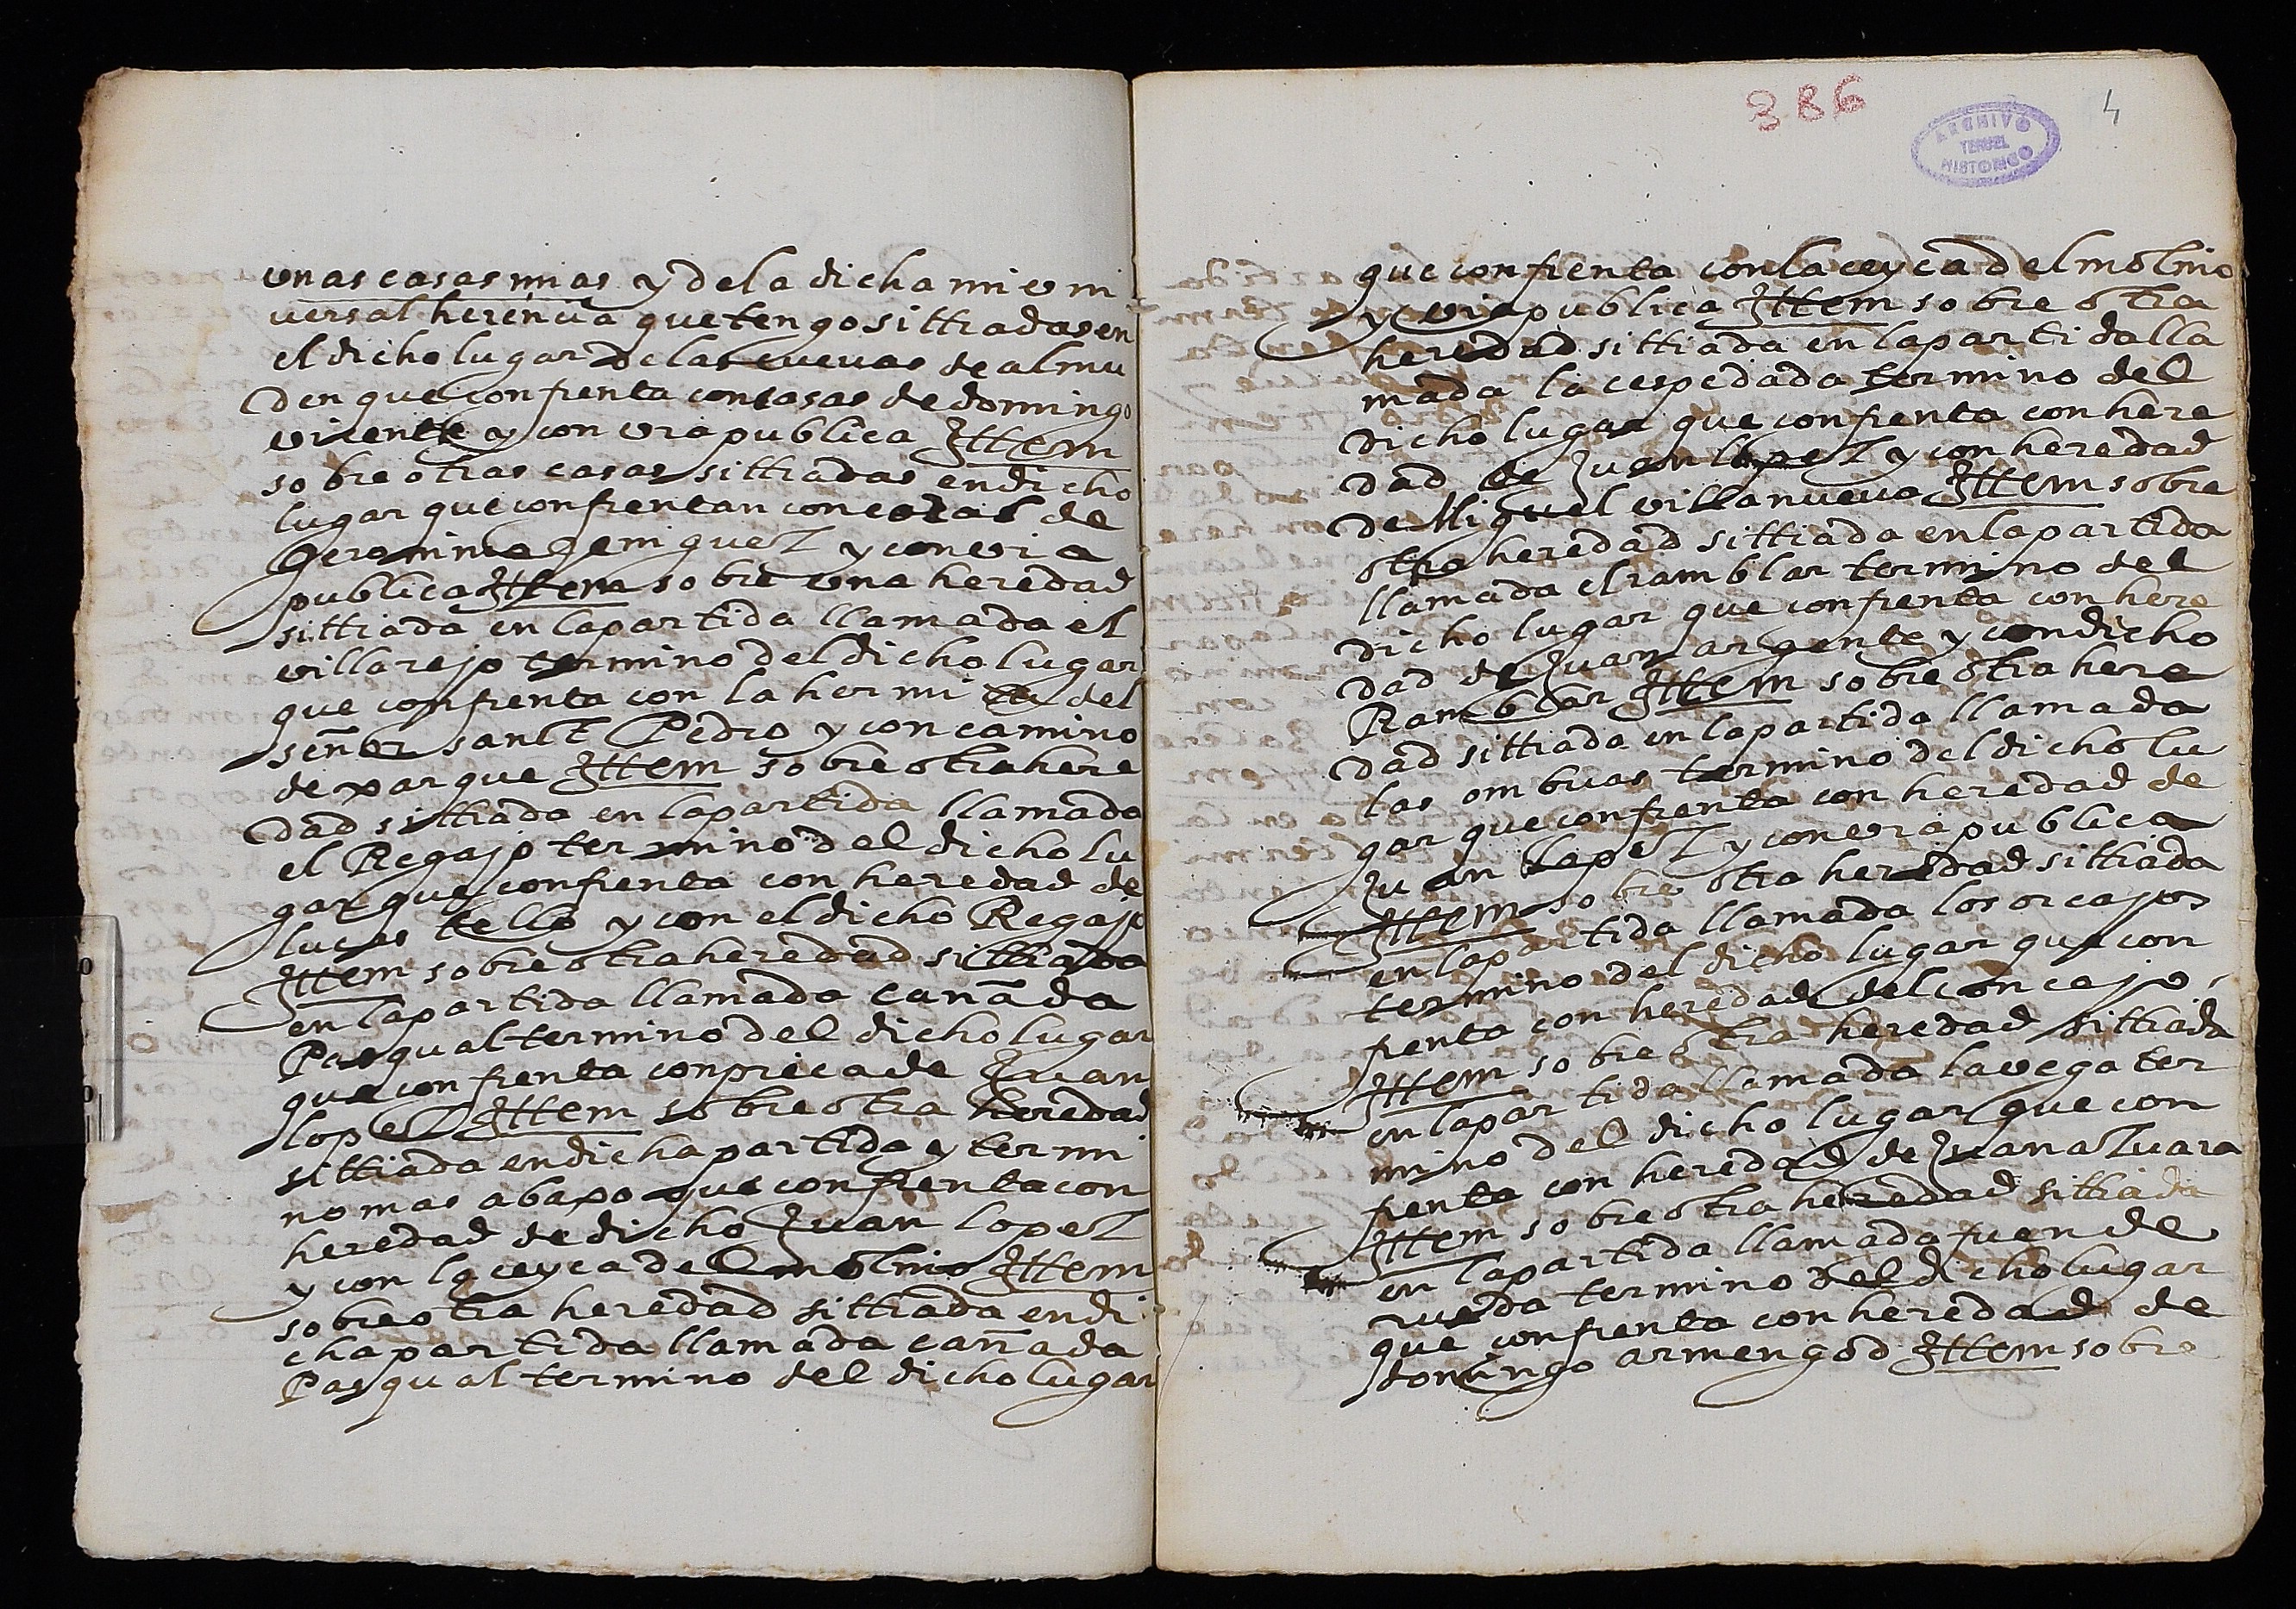 unas casas mias y de la dicha mi uni
uersal herencia que tengo sittiadas en
el dicho lugar de las cueuas de almu
den que confrenta con casas de domingo
vicente y con via publica Ittem
sobre otras casas sittiadas en dicho
lugar que confrentan con casas de
Geronimo Xeniguez y con via
publica Ittem sobre una heredad
sittiada en la partida llamada el
villarejo termino del dicho lugar
que confrenta con la hermita del
señor sanct Pedro y con camino
de xarque Ittem sobre otra here
dad sittiada en la partida llamada
el Regajo termino del dicho lu
gar que confrenta con heredad de
lucas tello y con el dicho Regajo
Ittem sobre otra heredad sittiada
en la partida llamada cañada
Pasqual termino del dicho lugar
que confrenta con pieca de Juan
lopez Ittem sobre otra heredad
sittiada en dicha partida y termi
no mas abaxo que confrenta con
heredad de dicho Juan lopez
y con la ceyca del molino Ittem
sobre otra heredad sittiada en di
cha partida llamada cañada
Pasqual termino del dicho lugar
386
4
ARCHIVO
TERUEL
HISTORICO
que confrenta con la ceyca del molino
y via publica Ittem sobre otra
heredad sittiada en la partida lla
mada la cespedada termino del
dicho lugar que confrenta con here
dad de Juan lopez y con heredad
de Miguel villanueua Ittem sobre
otra heredad sittiada en la partida
llamada el ramblar termino del
dicho lugar que confrenta con here
dad de Juan argente y con dicho
Ramblar Ittem sobre otra here
dad sittiada en la partida llamada
las ombrias termino del dicho lu
gar que confrenta con heredad de
Juan lopez y con via publica
Ittem sobre otra heredad sittiada
en la partida llamada los orcajos
termino del dicho lugar que con
frenta con heredad del concejo
Ittem sobre otra heredad sittiada
en la partida llamada la vega ter
mino del dicho lugar que con
frenta con heredad de Juan aluara
Ittem sobre otra heredad sittiada
en la partida llamada fuen de
rueda termino del dicho lugar
que confrenta con heredad de
domingo armengod Ittem sobre